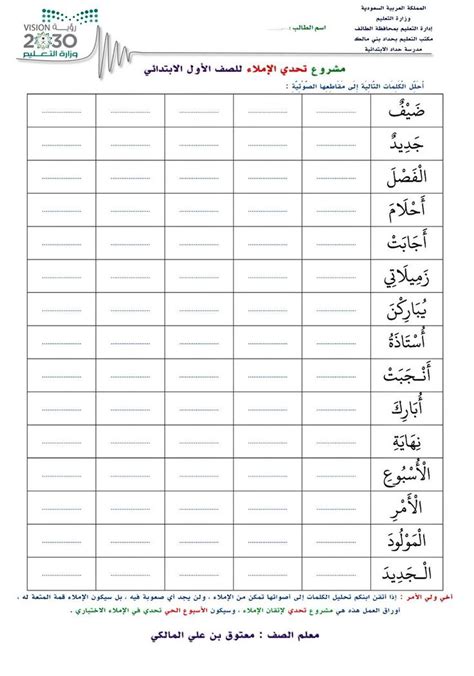 المملكة العربية السعودية
وزارة التعليم
إدارة التعليم بمحافظة الطائف
مكتب التعليم بحداد بني مالك
مدرسة حداد الابتدائية
اسم الطالب :
رؤية VISION
2030
وزارة التعليم
مشروع تحدي الإملاء للصف الأول الابتدائي
أحلل الكلمات التالية إلى مقاطعها الصوتية :
ضَيْفٌ
جَدِيدٌ
الْفَصْلَ
أَحْلَامَ
أَجَابَتْ
زَمِيلَاتِي
يُبَارِكْنَ
أُسْتَاذَةُ
أَنْـجَبَتْ
أُبَارِكَ
نِهَايَةِ
الْأُسْبُوعِ
الْأَمْرِ
الْمَوْلُودَ
الْـجَدِيدَ
أخي ولي الأمر : إذا أتقن ابنكم تحليل الكلمات إلى أصواتها تمكن من الإملاء ، ولن يجد أي صعوبة فيه ، بل سيكون الإملاء قمة المتعة له ،
أوراق العمل هذه هي مشروع تحدي لإتقان الإملاء ، وسيكون الأسبوع الحي تحدي في الإملاء الاختباري .
معلم الصف : معتوق بن علي المالكي